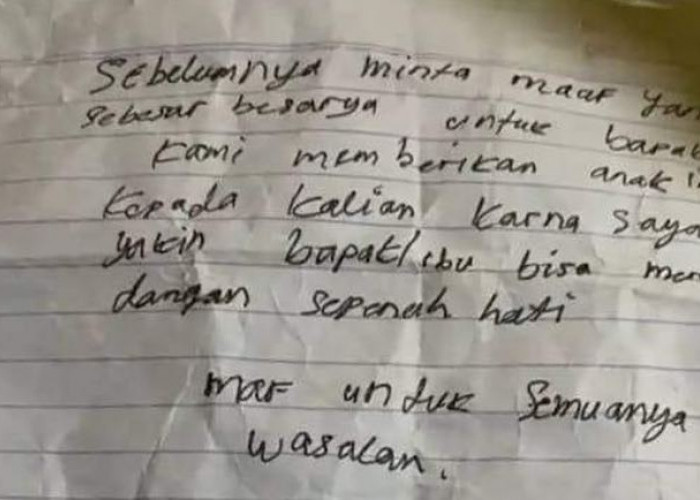 Sebelumnya minta maaf yan
sebesar besarya untuk bapak
Kami memberikan anak i
Kepada kalian Karna Saya
yakin bapak/ibu bisa mer
dangan sepenah hati
maf untuk Semuanya
wasalan.